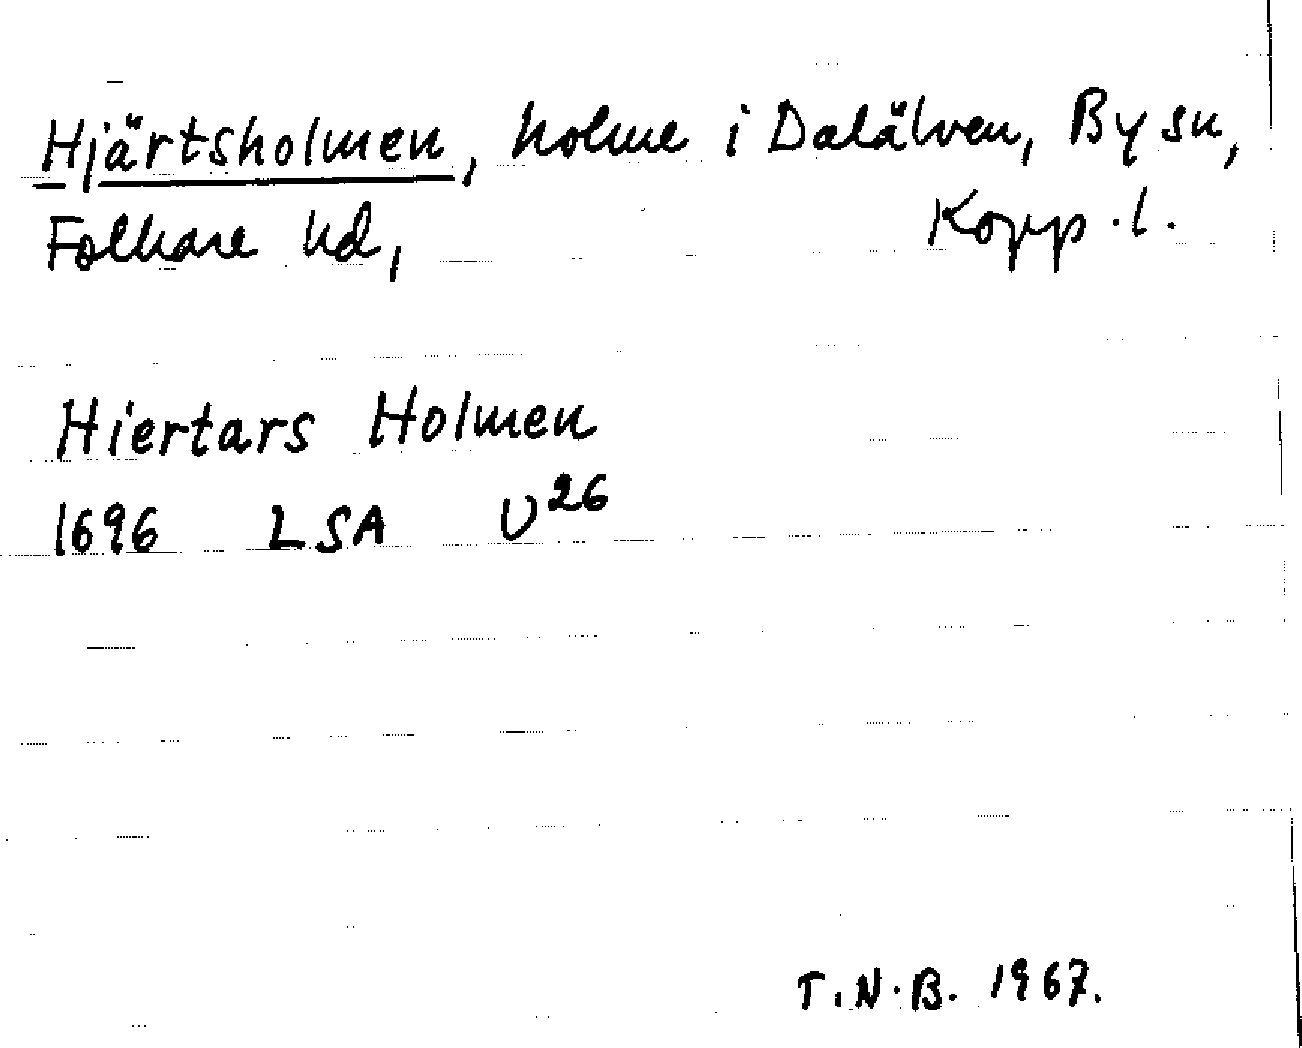 Hjärtsholmen, holme i Dalälven, By sn,
Folkare hd, Kopp.l.
Hiertars Holmen
1696 LSA U²⁶
T.N.B. 1967.